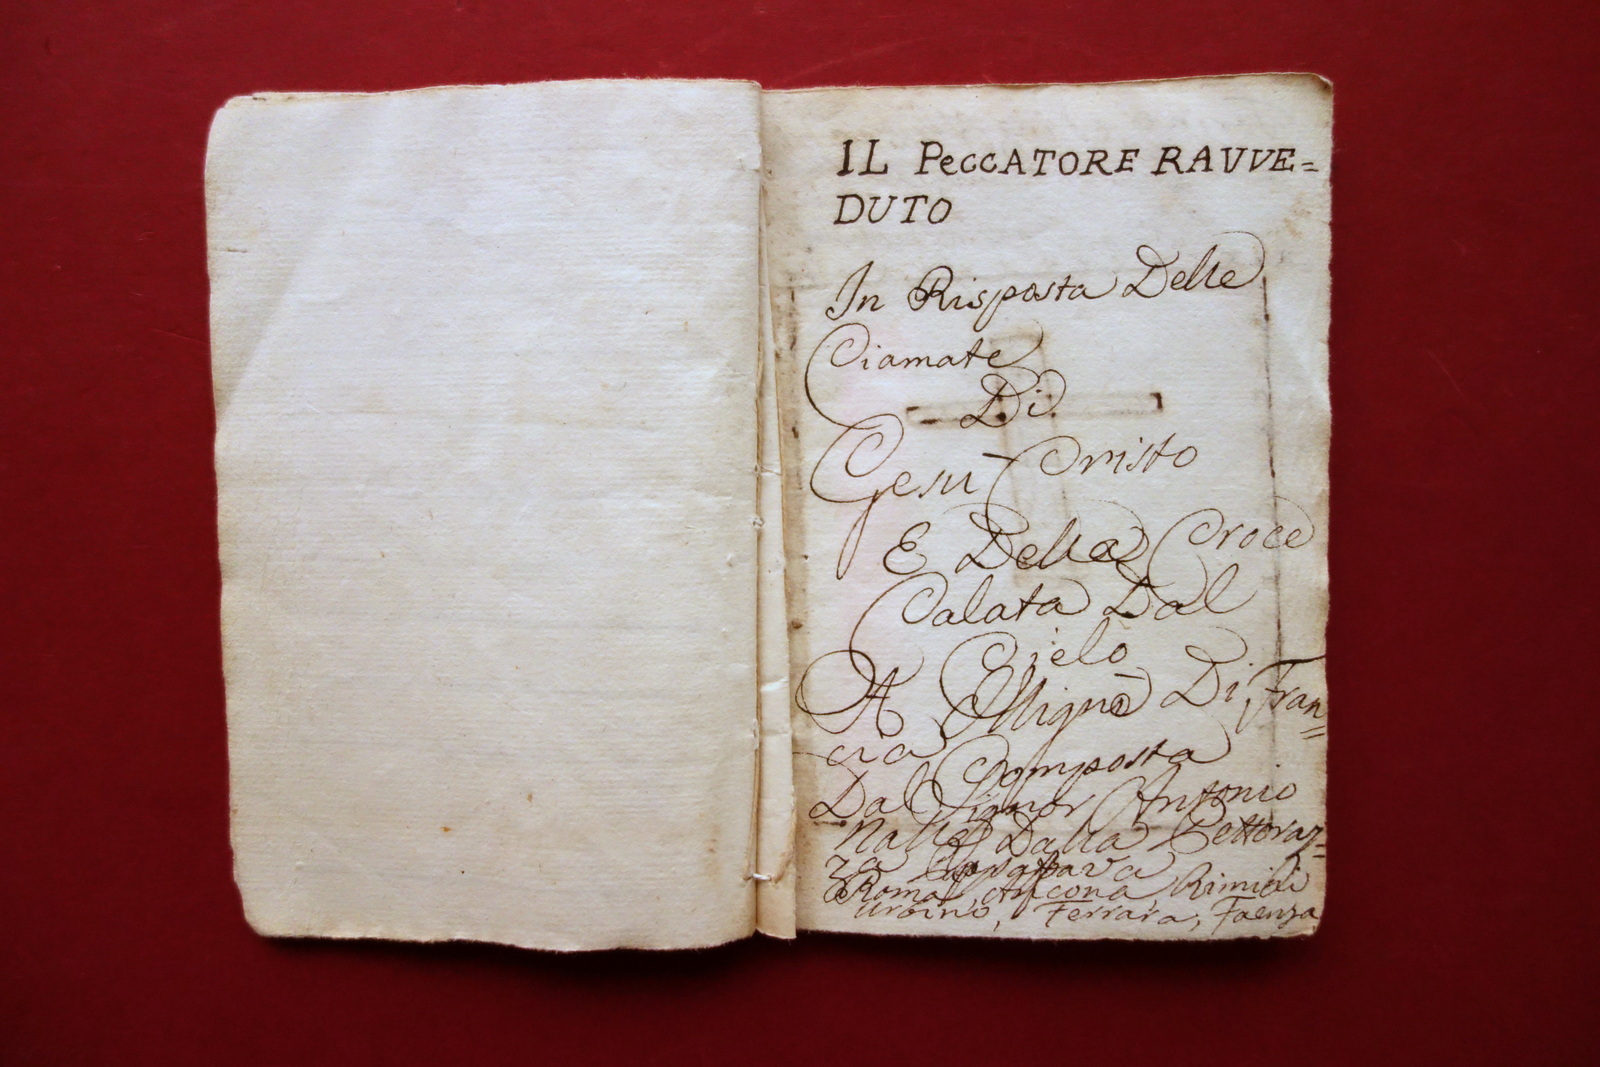 IL PeCCATORE RAVVE=
DUTO
In Risposta Delle
Ciamate
Di
Gesu Cristo
E Della Croce
Calata Dal
Cielo
A Mignè Di Fran=
cia Composta
Dal Signor Antonio
Dalla Pettoraz=
za
Roma, Ancona, Rimini
Urbino, Ferrara, Faenza